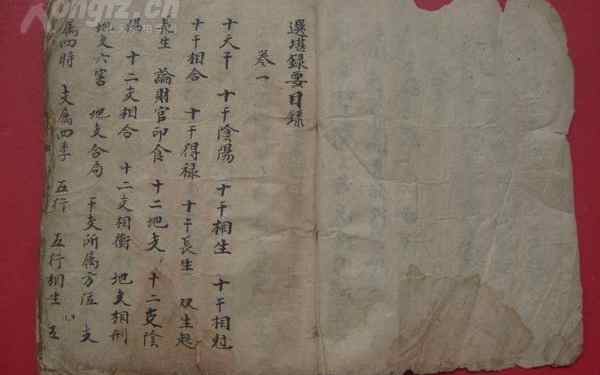 選堪錄要目錄
卷一
十天干 十干陰陽 十干相生 十干相尅
十干相合 十干得禄 十干長生 双生起
長生 論財官印食 十二地支 十二支陰
陽 十二支相合 十二支相衝 地支相刑
地支六害 地支合局 干支所属方位 支
属四時 支属四季 五行 五行相生 五
kongfz.cn